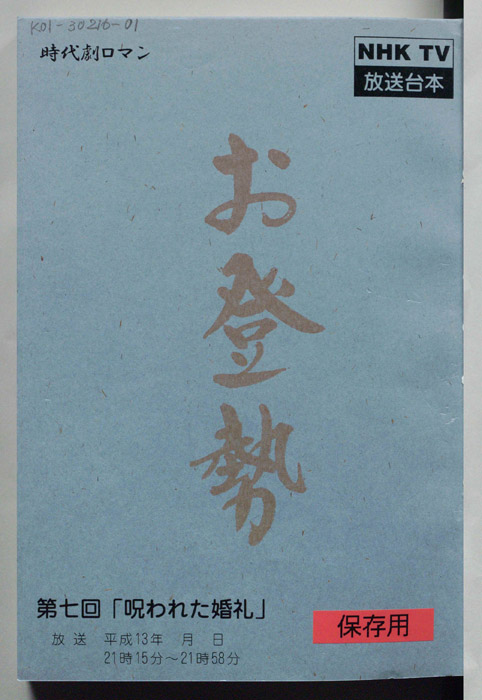 K01-30216-01
時代劇ロマン
NHK TV
放送台本
お登勢
第七回「呪われた婚礼」
保存用
放送 平成13年 月 日
21時15分～21時58分